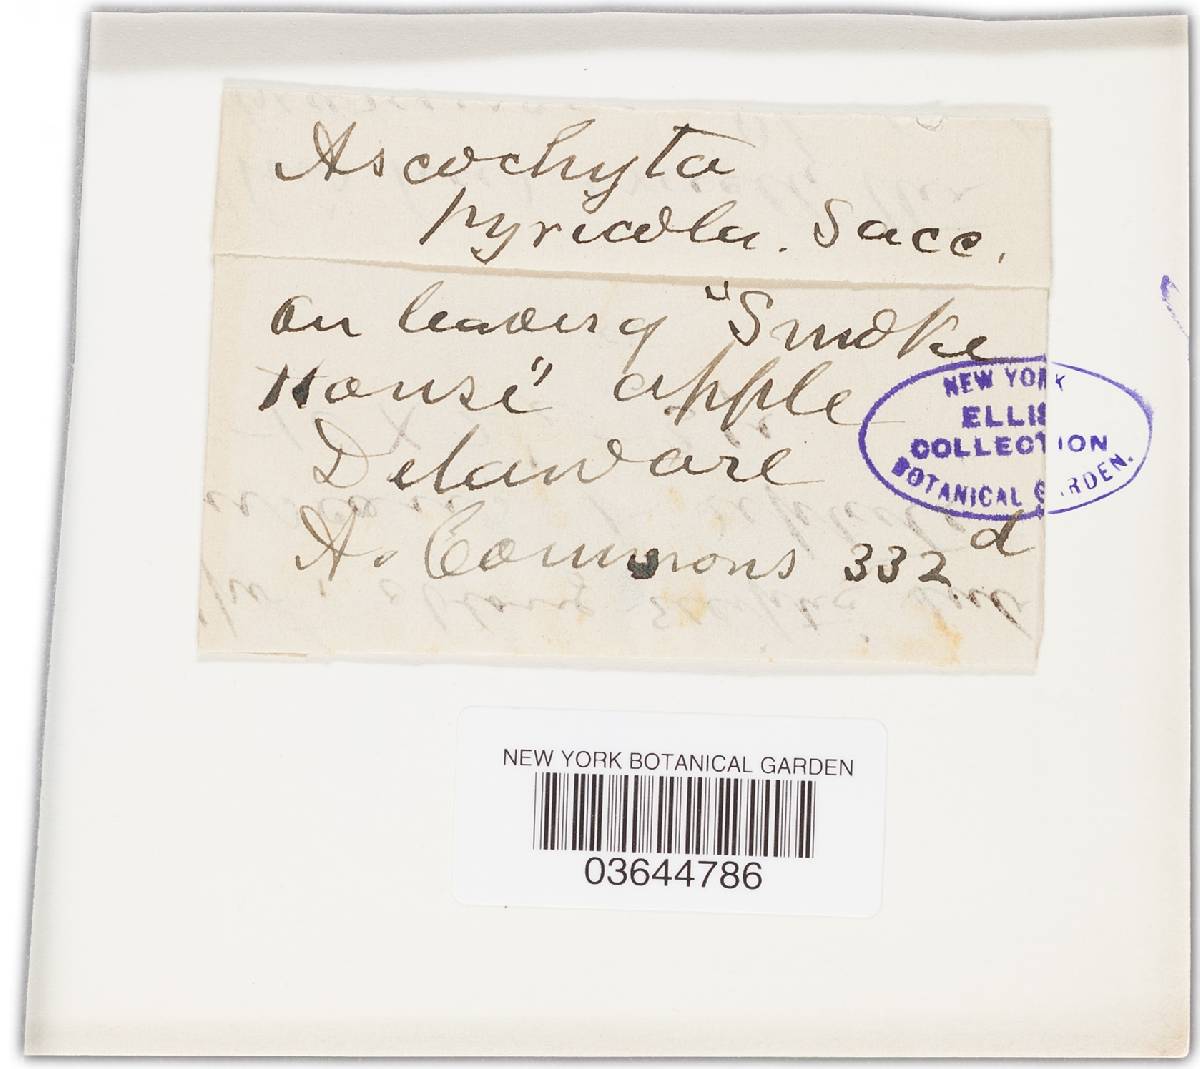 Ascochyta
pyricola. Sacc.
on leaves of "Smoke
House" apple
Delaware
A. Commons 332d
NEW YORK
ELLIS
COLLECTION
BOTANICAL GARDEN.
NEW YORK BOTANICAL GARDEN
03644786